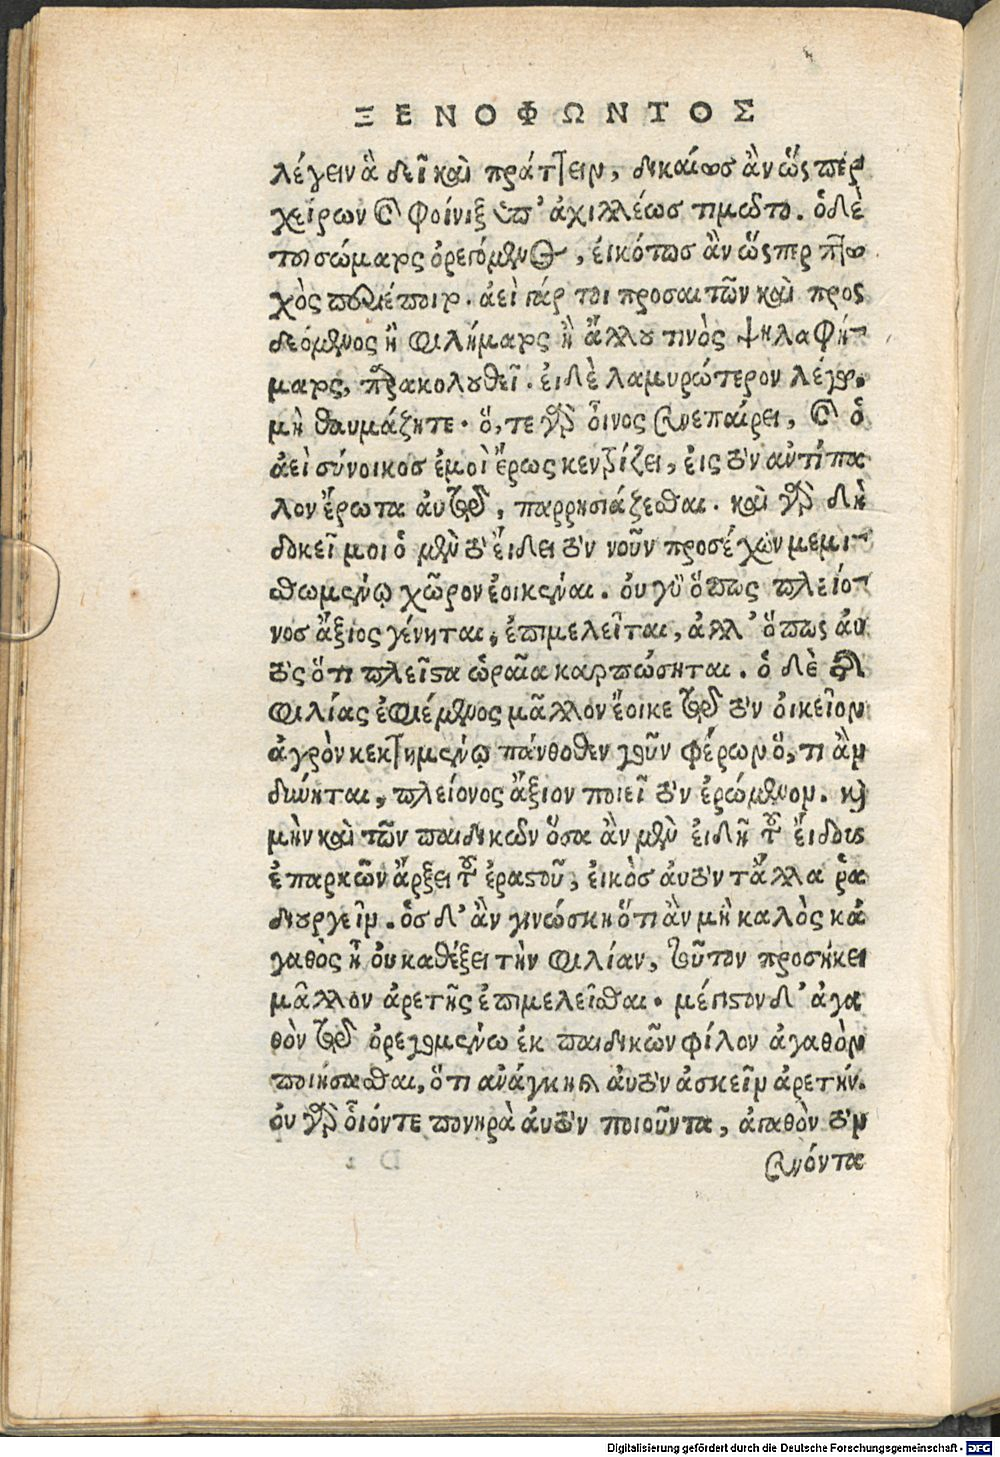 ΞΕΝΟΦΩΝΤΟΣ
λέγειν ἃ δεῖ καὶ πράττειν, δικαίως ἂν ὥσπερ
χείρων καὶ φοίνιξ ὑπ' ἀχιλλέως τιμῶτο. ὁ δὲ
τοῦ σώματος ὀρεγόμενος, εἰκότως ἂν ὥσπερ πτω
χὸς περιέποιτο. ἀεὶ γάρ τοι προσαιτῶν καὶ προς
δεόμενος ἢ φιλήματος ἢ ἄλλου τινὸς ψηλαφή-
ματος, παρακολουθεῖ. εἰ δὲ λαμυρώτερον λέγω,
μὴ θαυμάζητε. ὅ, τε γὰρ οἶνος συνεπαίρει, καὶ ὁ
ἀεὶ σύνοικος ἐμοὶ ἔρως κεντρίζει, εἰς τὸν αὐτίπα
λον ἔρωτα αὐτοῦ, παρρησιάζεσθαι. καὶ γὰρ δὴ
δοκεῖ μοι ὁ μὲν τῷ εἴδει τὸν νοῦν προσέχων μεμι-
σθωμένῳ χῶρον ἐοικέναι. οὐ γὰρ ὅπως πλείο-
νος ἄξιος γένηται, ἐπιμελεῖται, ἀλλ' ὅπως αὐ
τὸς ὅτι πλεῖστα ὡραῖα καρπώσηται. ὁ δὲ τῆς
φιλίας ἐφιέμενος μᾶλλον ἔοικε τῷ τὸν οἰκεῖον
ἀγρὸν κεκτημένῳ πάνθοθεν γοῦν φέρων ὅ, τι ἂν
δύνηται, πλείονος ἄξιον ποιεῖ τὸν ἐρώμενον. καὶ
μὴν καὶ τῶν παιδικῶν ὅσα ἂν μὲν εἰδῇ ὅτι τοῦ εἴδους
ἐπαρκῶν ἄρξει τοῦ ἐραστοῦ, εἰκὸς αὐτὸν τἄλλα ῥα
διουργεῖν. ὃς δ' ἂν γινώσκῃ ὅτι ἂν μὴ καλὸς κἀ
γαθὸς ᾖ οὐ καθέξει τὴν φιλίαν, τοῦτον προσήκει
μᾶλλον ἀρετῆς ἐπιμελεῖσθαι. μέγιστον δ' ἀγα
θὸν τῷ ὀρεγομένῳ ἐκ παιδικῶν φίλον ἀγαθὸν
ποιήσασθαι, ὅτι ἀνάγκη καὶ αὐτὸν ἀσκεῖν ἀρετήν.
οὐ γὰρ οἷόντε πονηρὰ αὐτὸν ποιοῦντα, ἀγαθὸν τὸν
συνόντα
Digitalisierung gefördert durch die Deutsche Forschungsgemeinschaft - DFG